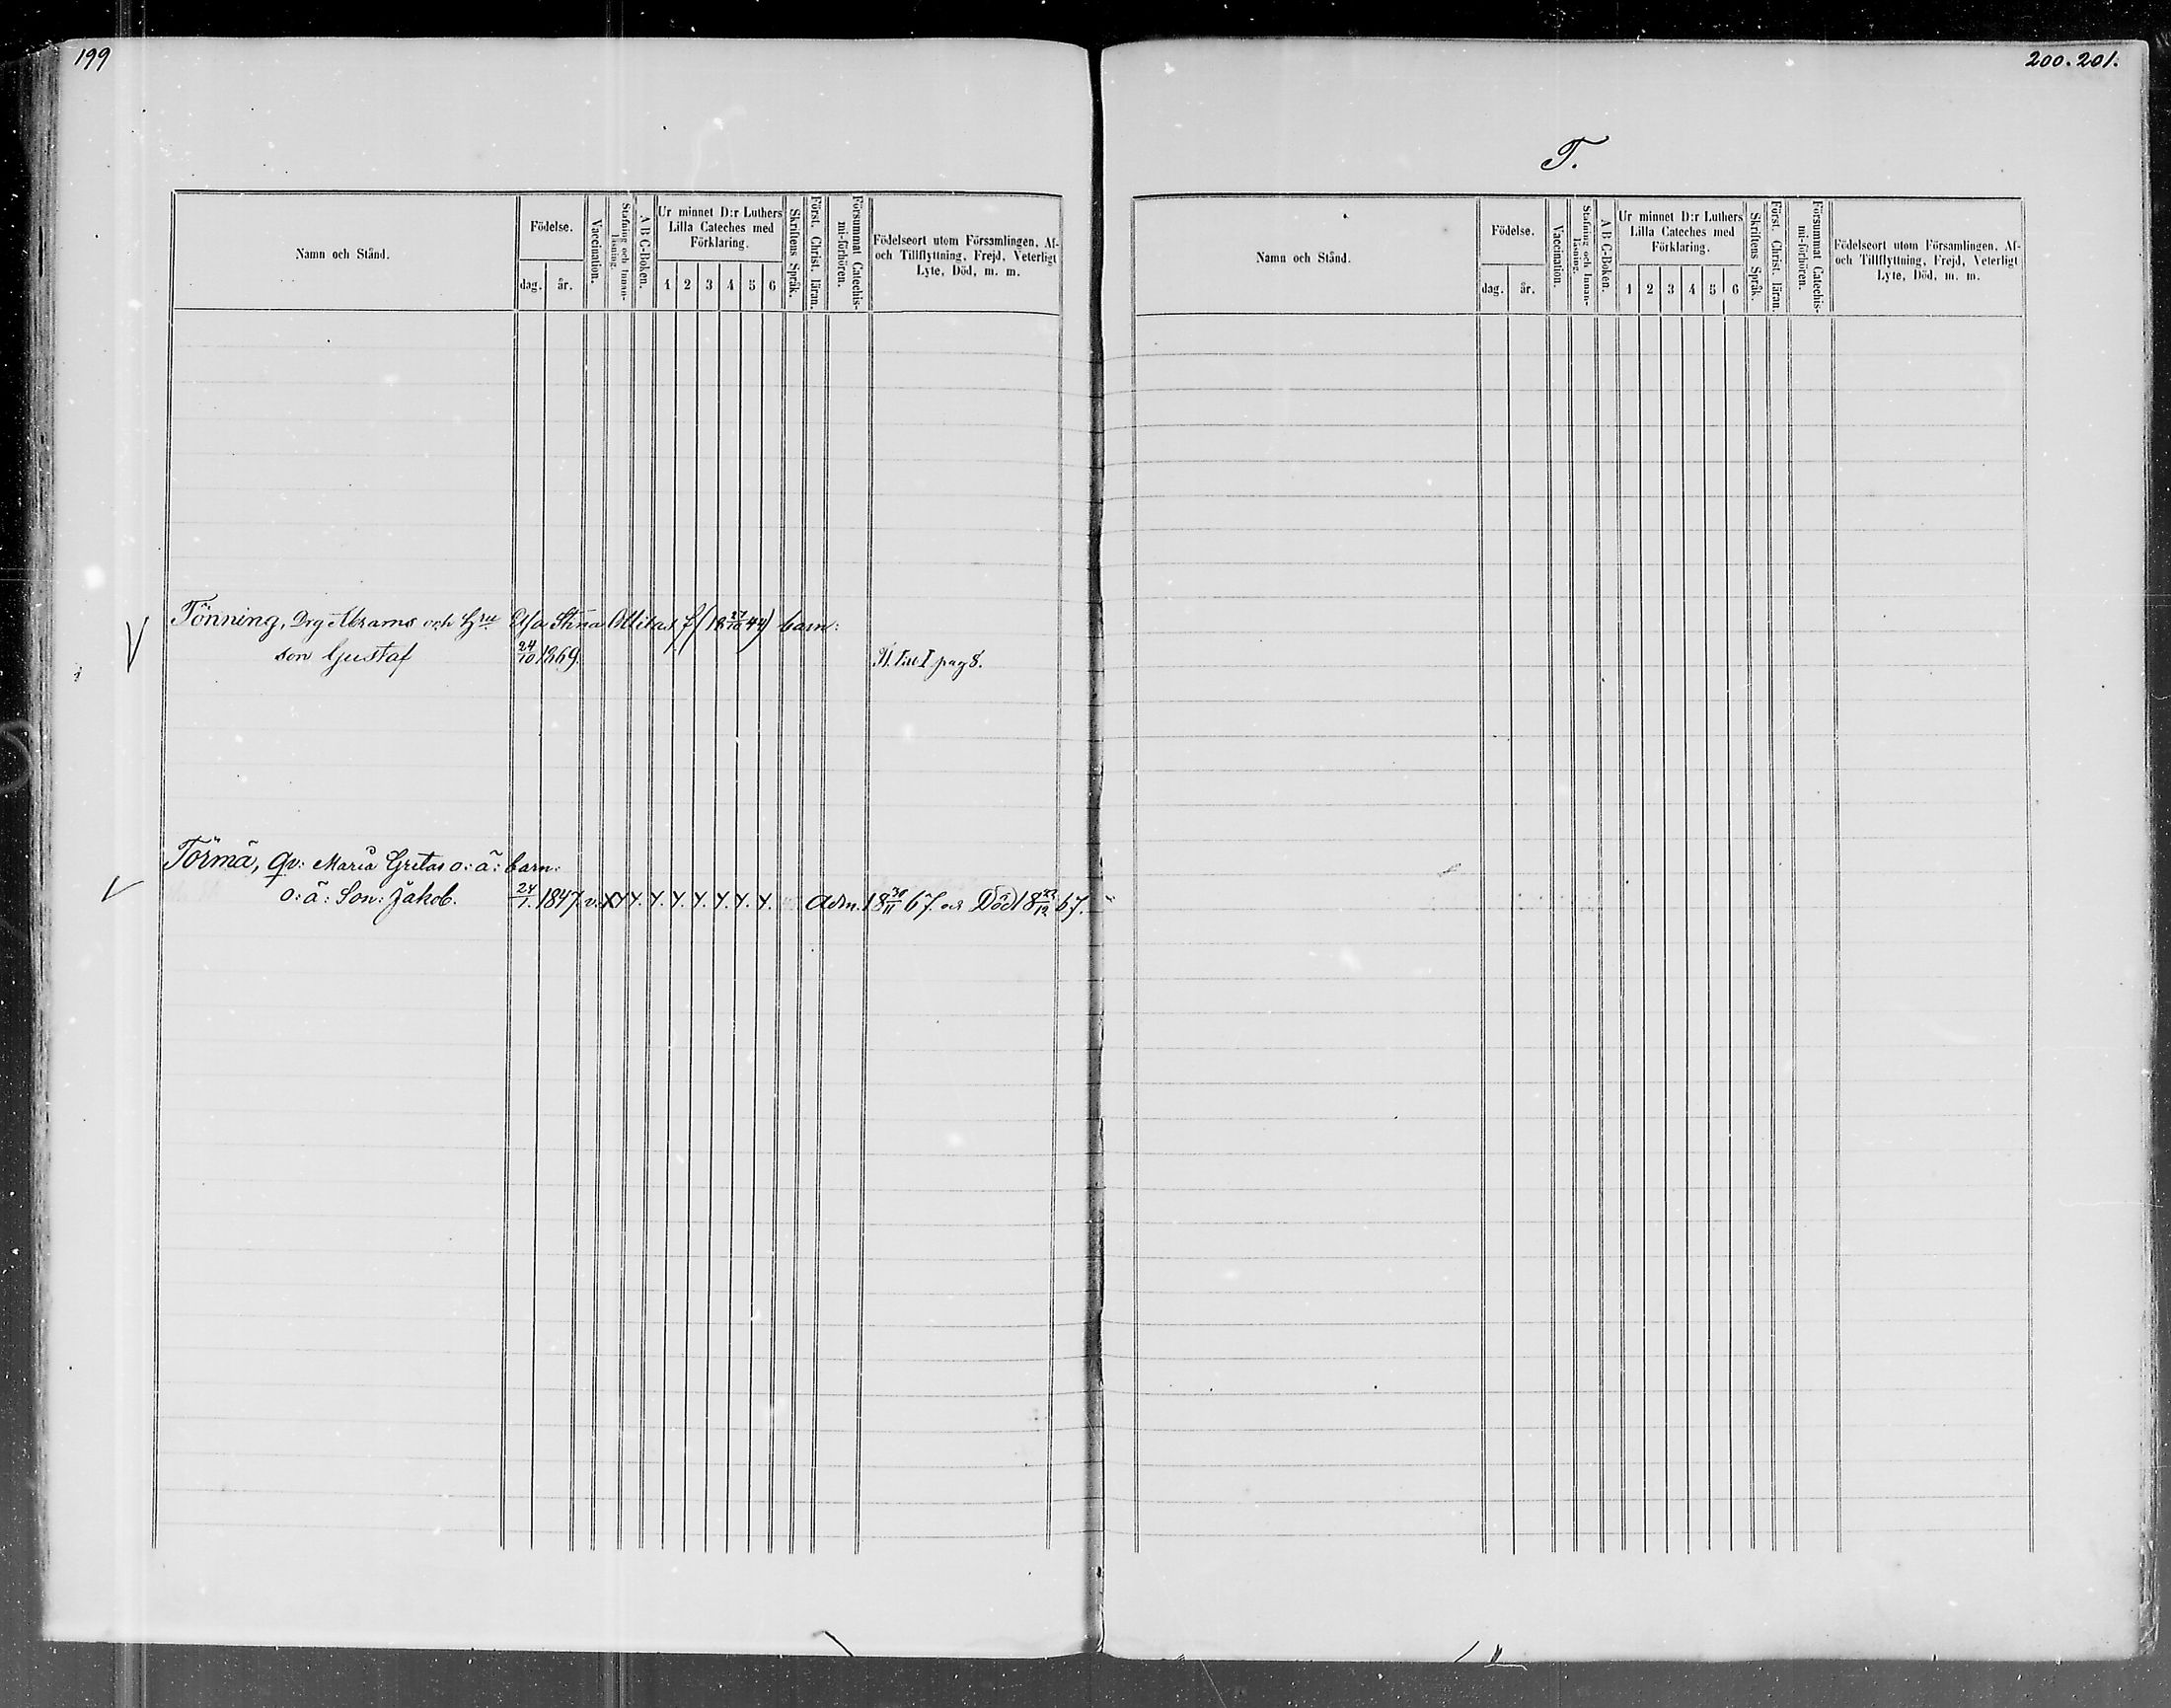 199
200. 201.
T.
Namn och Stånd.
Födelse.
dag.
år.
Vaccination.
Stafning och Innan-
läsning.
A B C-Boken.
Ur minnet D:r Luthers
Lilla Cateches med
Förklaring.
1 2 3 4 5 6
Skriftens Språk.
Först. Christ. läran.
Försummat Catechis-
mi-förhören.
Födelseort utom Församlingen, Af-
och Tillflyttning, Frejd, Veterligt
Lyte, Död, m. m.
Tönning, Drg Abrams och H:ru Ulja Stina f (18 27/10 44) barn:
son Gustaf 24/10 1869. pag 8.
Törmä, qv: Maria Gretas o: ä: barn:
o: ä: Son: Jakob. 24/1. 1847. v. Adm. 18 30/11 67. och Död 18 23/12 67.
Namn och Stånd.
Födelse.
dag.
år.
Vaccination.
Stafning och Innan-
läsning.
A B C-Boken.
Ur minnet D:r Luthers
Lilla Cateches med
Förklaring.
1 2 3 4 5 6
Skriftens Språk.
Först. Christ. läran.
Försummat Catechis-
mi-förhören.
Födelseort utom Församlingen, Af-
och Tillflyttning, Frejd, Veterligt
Lyte, Död, m. m.